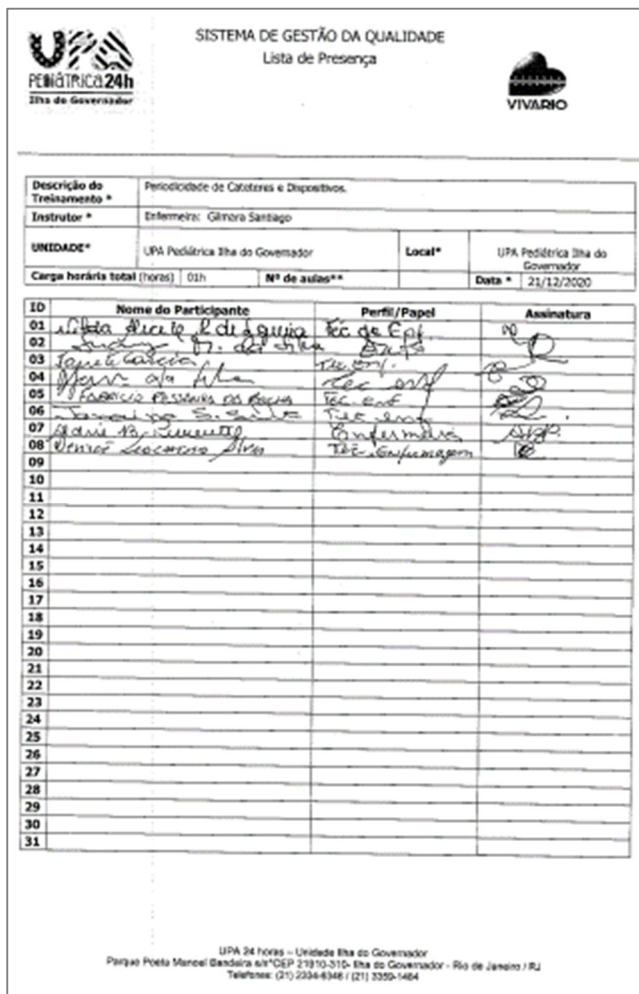 UPA
PEDIÁTRICA 24h
Ilha do Governador
SISTEMA DE GESTÃO DA QUALIDADE
Lista de Presença
VIVARIO
Descrição do Treinamento * Periodicidade de Cateteres e Dispositivos.
Instrutor * Enfermeira: Gilmara Santiago
UNIDADE* UPA Pediátrica Ilha do Governador Local* UPA Pediátrica Ilha do Governador
Carga horária total (horas) 01h Nº de aulas** Data * 21/12/2020
ID Nome do Participante Perfil/Papel Assinatura
01 Tec de Enf
02 da Silva
03 Garcia Tec. enf.
04 da Silva Tec. enf
05 FABRICIO PESSANHA DA ROCHA Tec. enf
06 S. Tec. enf
07 B. Enfermeira
08 Denise Silva Tec. Enfermagem
09
10
11
12
13
14
15
16
17
18
19
20
21
22
23
24
25
26
27
28
29
30
31
UPA 24 horas – Unidade Ilha do Governador
Parque Poeta Manoel Bandeira s/nº CEP 21910-310- Ilha do Governador - Rio de Janeiro / RJ
Telefones: (21) 2334-6346 / (21) 3359-1464